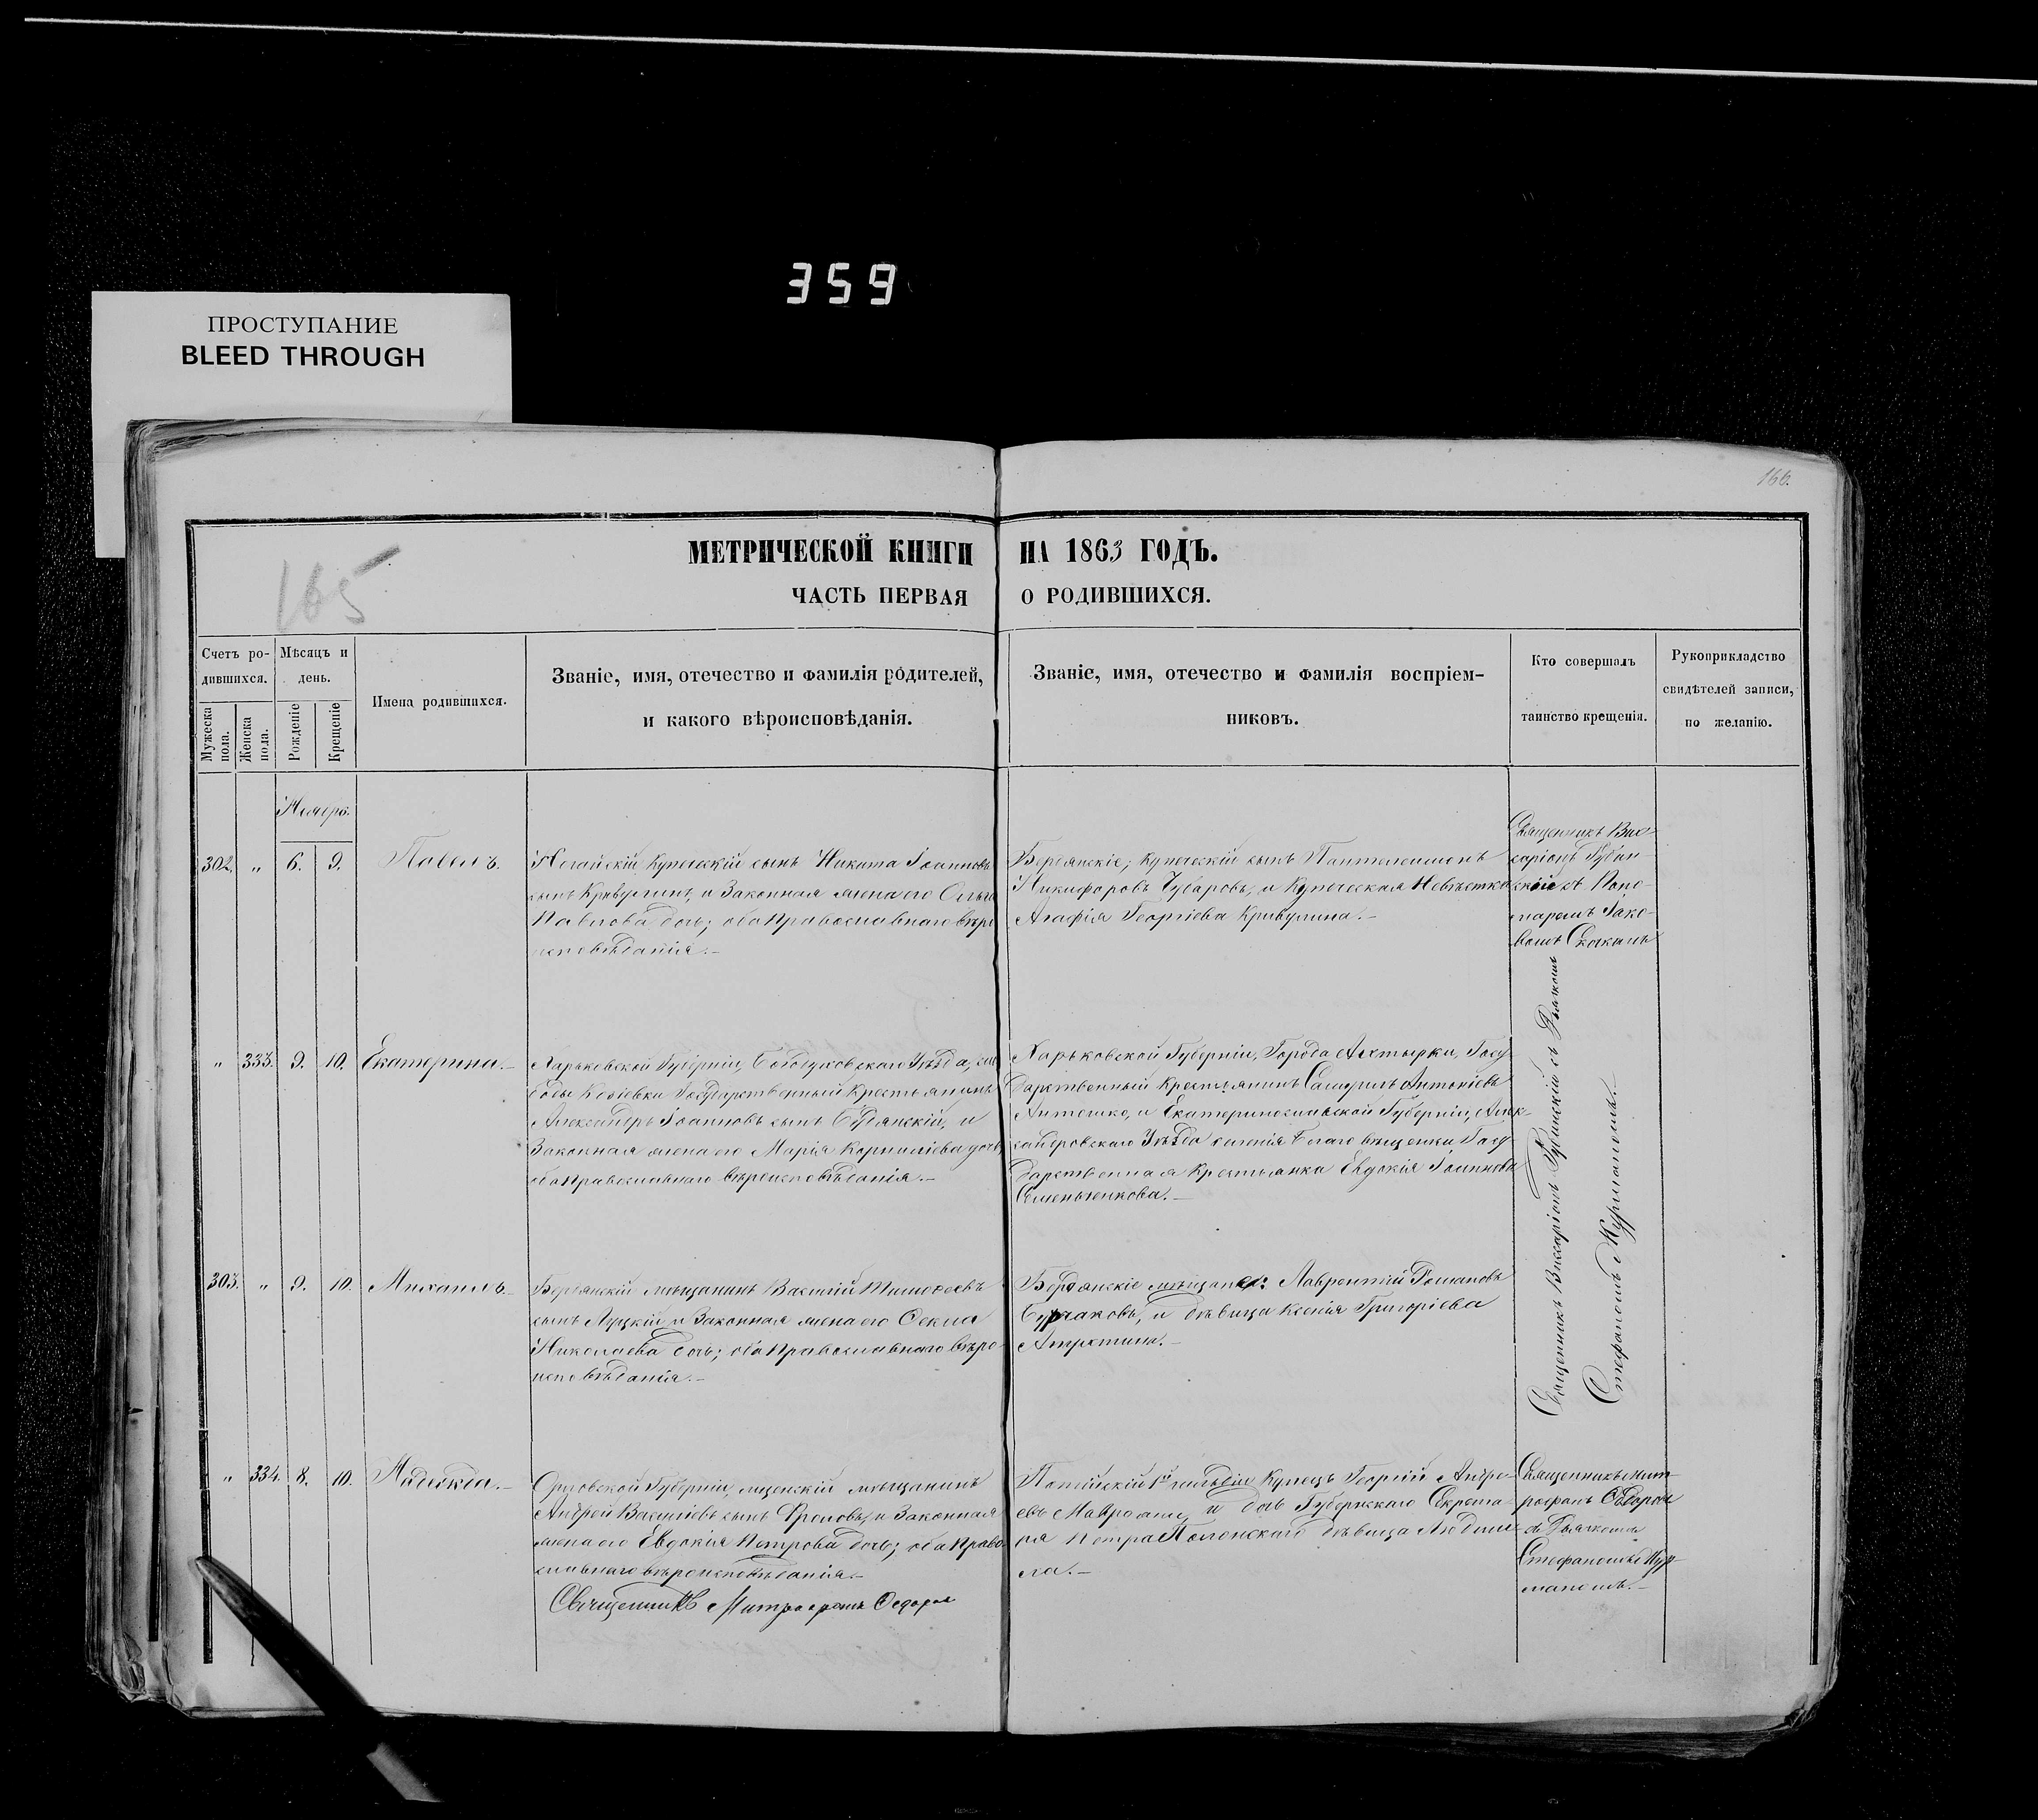 359
ПРОСТУПАНИЕ
BLEED THROUGH
166.
165
МЕТРИЧЕСКОЙ КНИГИ НА 1863 ГОДЪ.
ЧАСТЬ ПЕРВАЯ О РОДИВШИХСЯ.
Счетъ ро-
дившихся.
Мужеска пола.
Женска пола.
Мѣсяцъ и
день.
Рожденіе
Крещеніе
Имена родившихся.
Званіе, имя, отечество и фамилія родителей,
и какого вѣроисповѣданія.
Званіе, имя, отечество и фамилія воспріем-
никовъ.
Кто совершалъ
таинство крещенія.
Рукоприкладство
свидѣтелей записи,
по желанію.
302. " 6. 9. Павелъ.
Ногайскій купеческій сынъ Никита Іоанновъ
сынъ Кривулинъ, и законная жена его Ольга
Павлова дочь; оба православнаго вѣро
исповѣданія.-
Бердянскіе; купеческій сынъ Пантелеимонъ
Никифоровъ Чубаровъ, и купеческая невѣстка
Агафія Георгіева Кривулина.-
Священникъ Вис-
саріонъ
съ Поно-
маремъ Іако-
вомъ
" 333. 9. 10. Екатерина.-
Харьковской Губерніи, Богодуховскаго Уѣзда, сло
боды Козіевки Государственный крестьянинъ
Александръ Іоанновъ сынъ и
законная жена его Марія Корниліева дочь;
оба православнаго вѣроисповѣданія.-
Харьковской Губерніи, Города Ахтырки, Госу-
дарственный крестьянинъ Самуилъ Антоніевъ
и Екатеринославской Губерніи, Алек-
сандровскаго Уѣзда селенія Госу-
дарственная крестьянка Евдокія Іоаннова
Священникъ Виссаріонъ съ Дьячкомъ
Стефаномъ Курмановымъ.-
303. " 9. 10. Михаилъ.-
Бердянскій мѣщанинъ Василій Тимоѳеевъ
сынъ Луцкій и законная жена его Ѳекла
Николаева дочь; оба православнаго вѣро
исповѣданія.-
Бердянскіе мѣщане: Лаврентій Романовъ
и дѣвица Ксенія Григоріева
" 334. 8. 10. Надежда.-
Орловской Губерніи, мценскій мѣщанинъ
Андрей Василіевъ сынъ Фроловъ, и законная
жена его Евдокія Петрова дочь; оба право
славнаго вѣроисповѣданія.-
1й гильдіи купецъ Георгій Андре-
евъ и дочь Губернскаго Секрета-
ря Петра Полонскаго дѣвица Людми-
ла.-
Священникъ Мит-
рофанъ
съ Дьячкомъ
Стефаномъ Кур-
мановымъ.-
Священникъ Митрофанъ